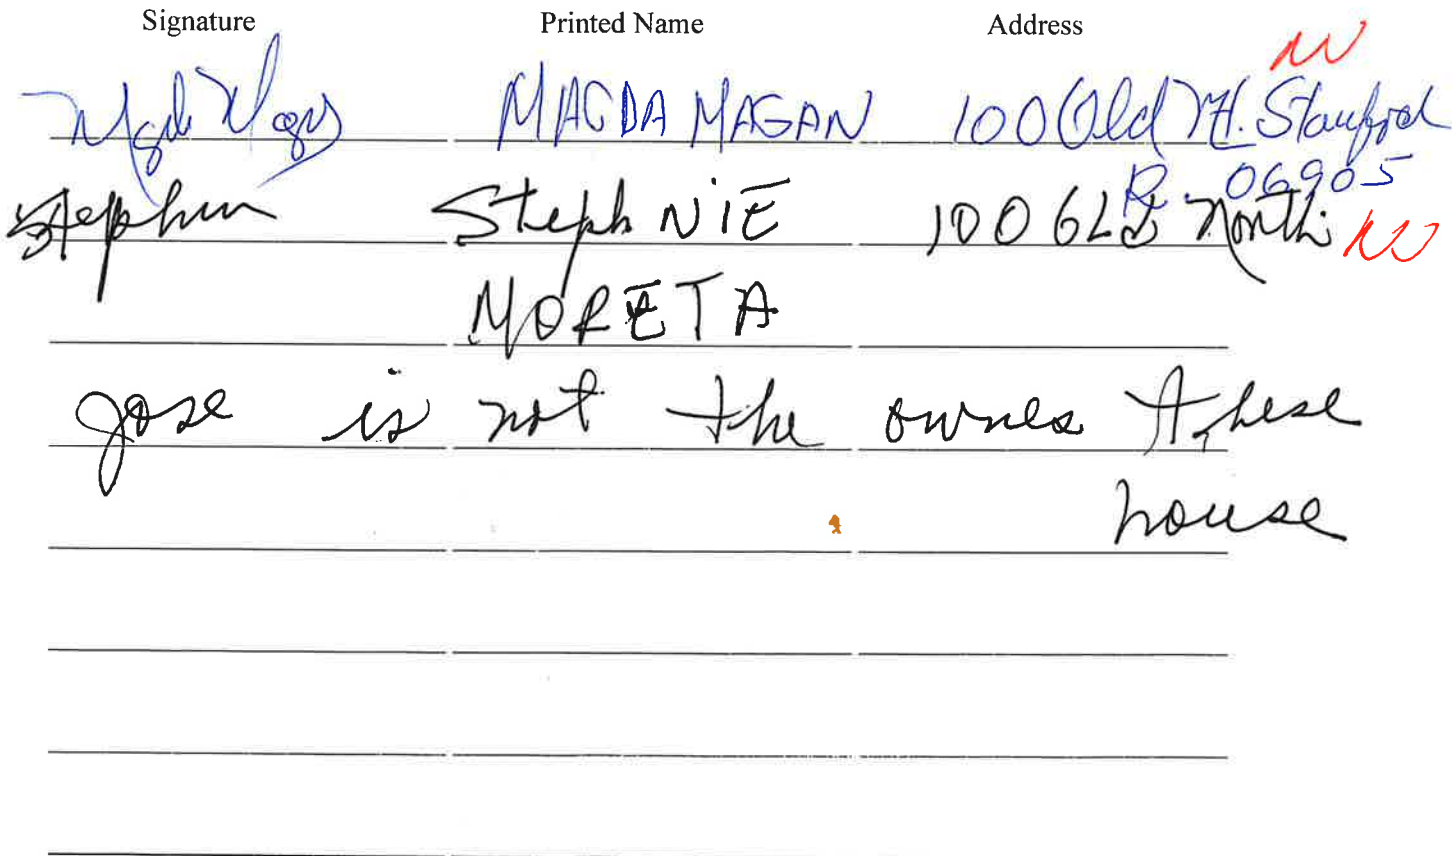 Signature Printed Name Address
MAGDA MAGAN 100 Old Stamford
R. 06905
Stephen Steph NiE 100 OLd North
MORETA
Jose is not the owner these
house